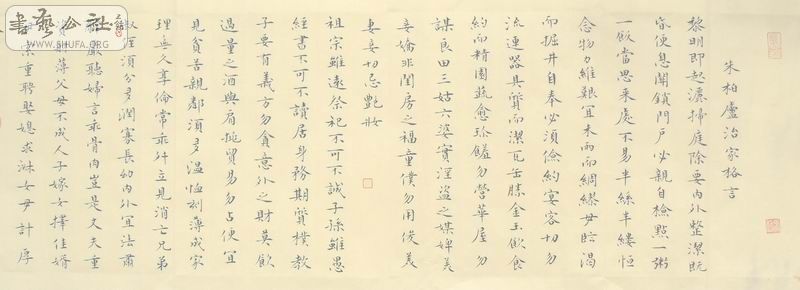 朱柏廬治家格言
黎明即起灑掃庭除要內外整潔既
昏便息關鎖門戶必親自檢點一粥
一飯當思來處不易半絲半縷恒
念物力維艱宜未雨而綢繆毋臨渴
而掘井自奉必須儉約宴客切勿
流連器具質而潔瓦缶勝金玉飲食
約而精園蔬愈珍饈勿營華屋勿
謀良田三姑六婆實淫盜之媒婢美
妾嬌非閨房之福童僕勿用俊美
妻妾切忌艷妝
祖宗雖遠祭祀不可不誠子孫雖愚
經書不可不讀居身務期質樸教
子要有義方勿貪意外之財莫飲
過量之酒與肩挑貿易勿占便宜
見貧苦親鄰須多溫恤刻薄成家
理無久享倫常乖舛立見消亡兄弟
叔侄須分多潤寡長幼內外宜法肅
辭嚴聽婦言乖骨肉豈是丈夫重
資財薄父母不成人子嫁女擇佳婿
毋索重聘娶媳求淑女毋計厚
書藝公社